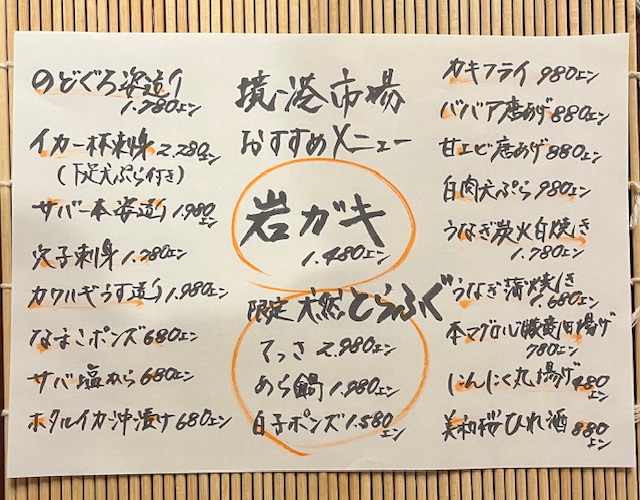 のどぐろ姿造り
1.780エン
イカ一杯刺身 2.280エン
(下足天ぷら付き)
サバ一本姿造り 1.980エン
穴子刺身 1.280エン
カワハギうす造り 1.980エン
なまこポンズ 680エン
サバ塩から 680エン
ホタルイカ沖漬け 680エン
境港市場
おすすめメニュー
岩ガキ
1.480エン
限定 天然とらふぐ
てっさ 2.980エン
あら鍋 1.980エン
白子ポンズ 1.580エン
カキフライ 980エン
ババア唐あげ 880エン
甘エビ唐あげ 880エン
白肉天ぷら 980エン
うなぎ炭火白焼き
1.780エン
うなぎ蒲焼き
1.680エン
本マグロ 竜田揚げ
780エン
にんにく丸揚げ 480エン
美和桜ひれ酒 880エン